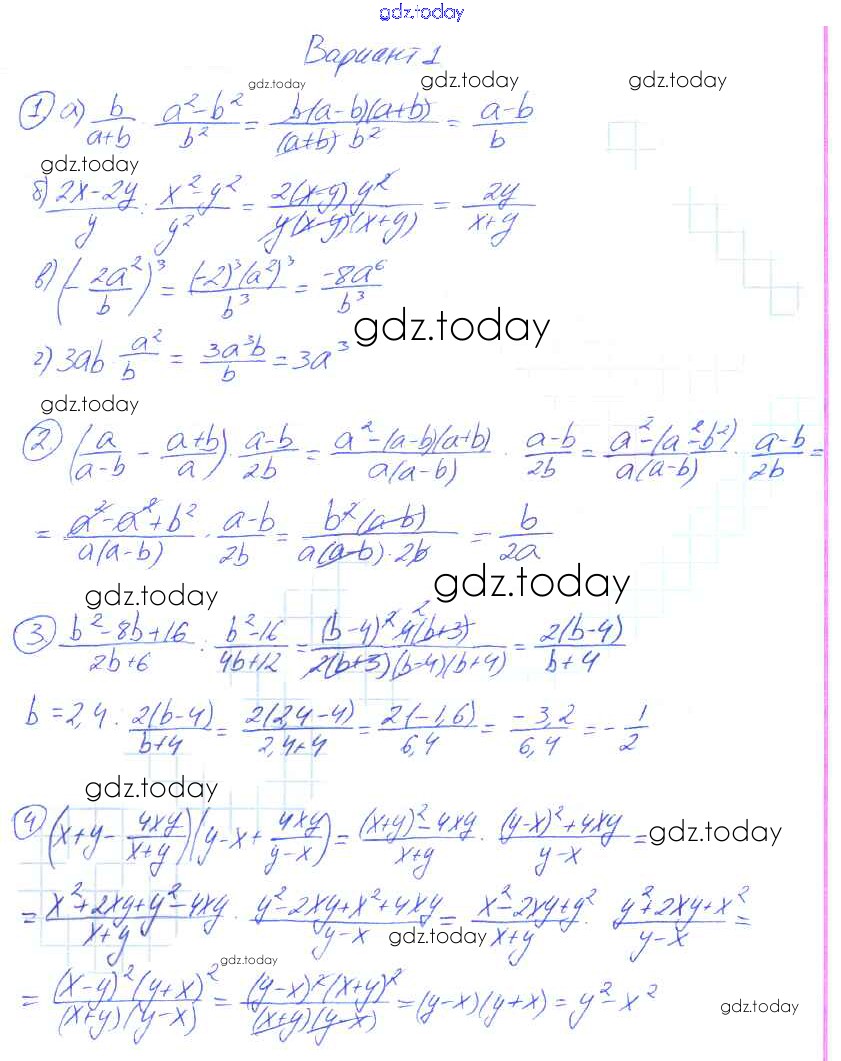 gdz.today
Вариант 1
gdz.today gdz.today gdz.today
① а) b/(a+b) · (a²-b²)/b² = b(a-b)(a+b)/((a+b) b²) = (a-b)/b
gdz.today
б) (2x-2y)/y : (x²-y²)/y² = 2(x-y) y²/(y(x-y)(x+y)) = 2y/(x+y)
в) (-2a²/b)³ = (-2)³(a²)³/b³ = -8a⁶/b³
gdz.today
г) 3ab · a²/b = 3a³b/b = 3a³
gdz.today
② (a/(a-b) - (a+b)/a) · (a-b)/2b = (a²-(a-b)(a+b))/(a(a-b)) · (a-b)/2b = (a²-(a²-b²))/(a(a-b)) · (a-b)/2b =
= (a²-a²+b²)/(a(a-b)) · (a-b)/2b = b²(a-b)/(a(a-b)·2b) = b/2a
gdz.today gdz.today
③ (b²-8b+16)/(2b+6) : (b²-16)/(4b+12) = (b-4)² 4(b+3)/(2(b+3)(b-4)(b+4)) = 2(b-4)/(b+4)
b = 2,4 : 2(b-4)/(b+4) = 2(2,4-4)/(2,4+4) = 2(-1,6)/6,4 = -3,2/6,4 = -1/2
gdz.today
④ (x+y - 4xy/(x+y))(y-x + 4xy/(y-x)) = ((x+y)²-4xy)/(x+y) · ((y-x)²+4xy)/(y-x) =
gdz.today
= (x²+2xy+y²-4xy)/(x+y) · (y²-2xy+x²+4xy)/(y-x) = (x²-2xy+y²)/(x+y) · (y²+2xy+x²)/(y-x) =
gdz.today
gdz.today
= (x-y)²(y+x)²/((x+y)(y-x)) = (y-x)²(x+y)²/((x+y)(y-x)) = (y-x)(y+x) = y²-x²
gdz.today